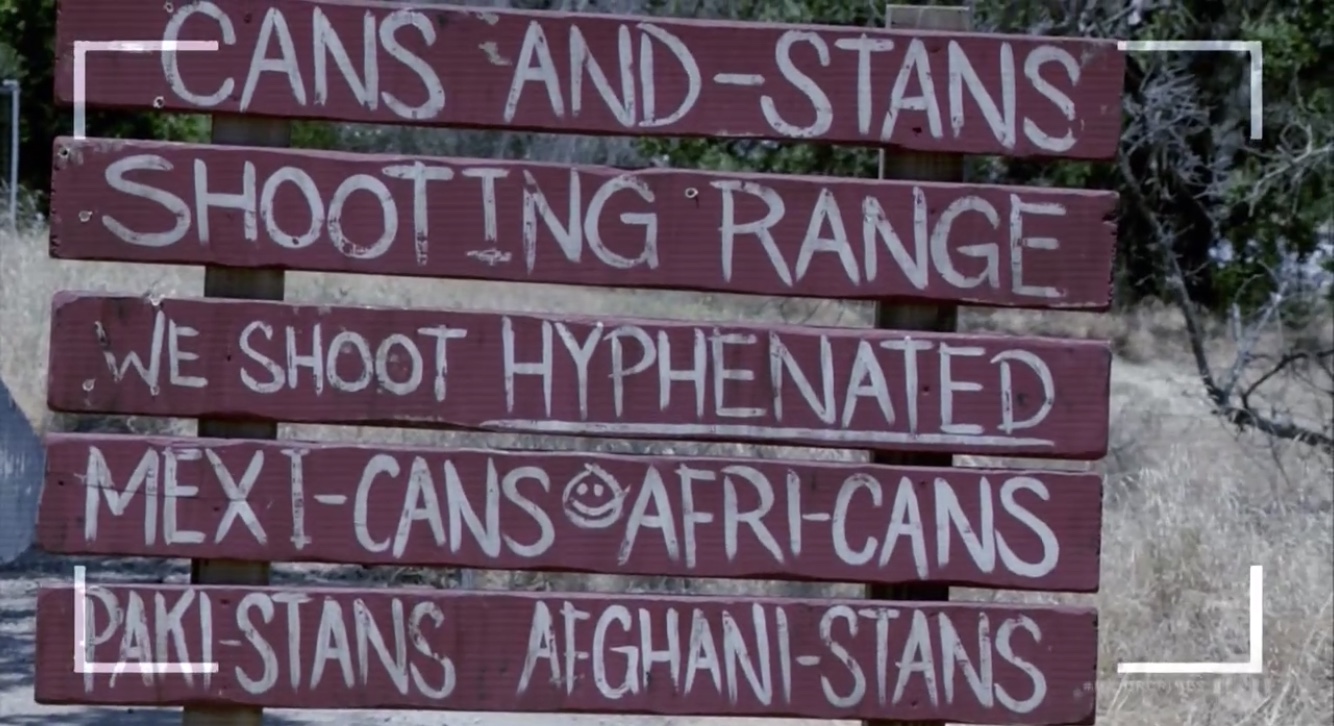 CANS AND-STANS
SHOOTING RANGE
WE SHOOT HYPHENATED
MEXI-CANS AFRI-CANS
PAKI-STANS AFGHANI-STANS